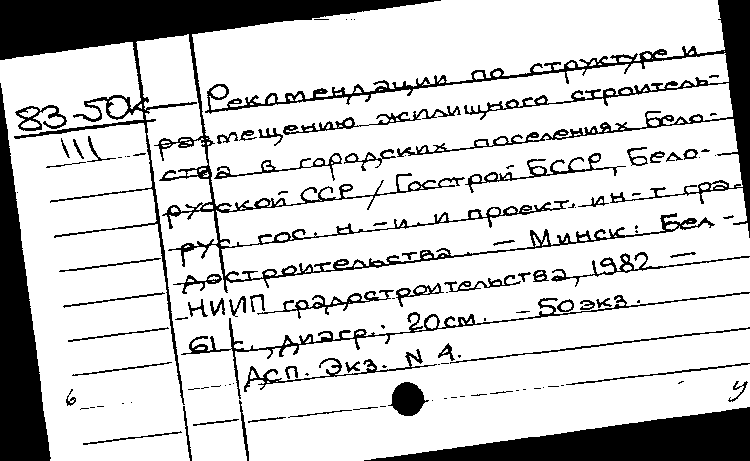 83-50к
III
Рекомендации по структуре и
размещению жилищного строитель-
ства в городских поселениях Бело-
русской ССР / Госстрой БССР, Бело-
рус. гос. н.-и. и проект. ин-т гра-
достроительства. — Минск: Бел-
НИИП градостроительства, 1982 —
61 с., диагр.; 20 см. — 50 экз.
Дсп. Экз. N 4.
6
у